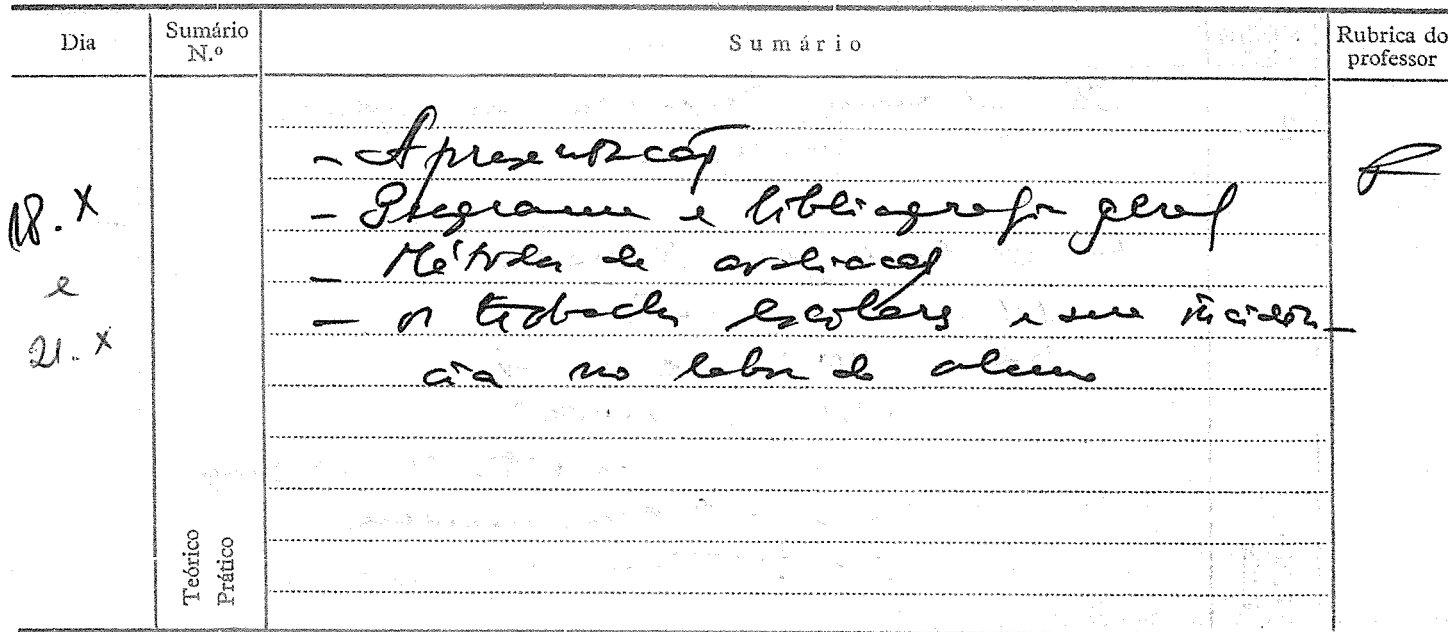 Dia
Sumário N.º
Sumário
Rubrica do professor
18.X
e
21.X
- Apresentação
- Programa e bibliografia geral
- Métodos de avaliação
- os trabalhos escolares e sua incidên-
cia no labor do aluno
Teórico
Prático